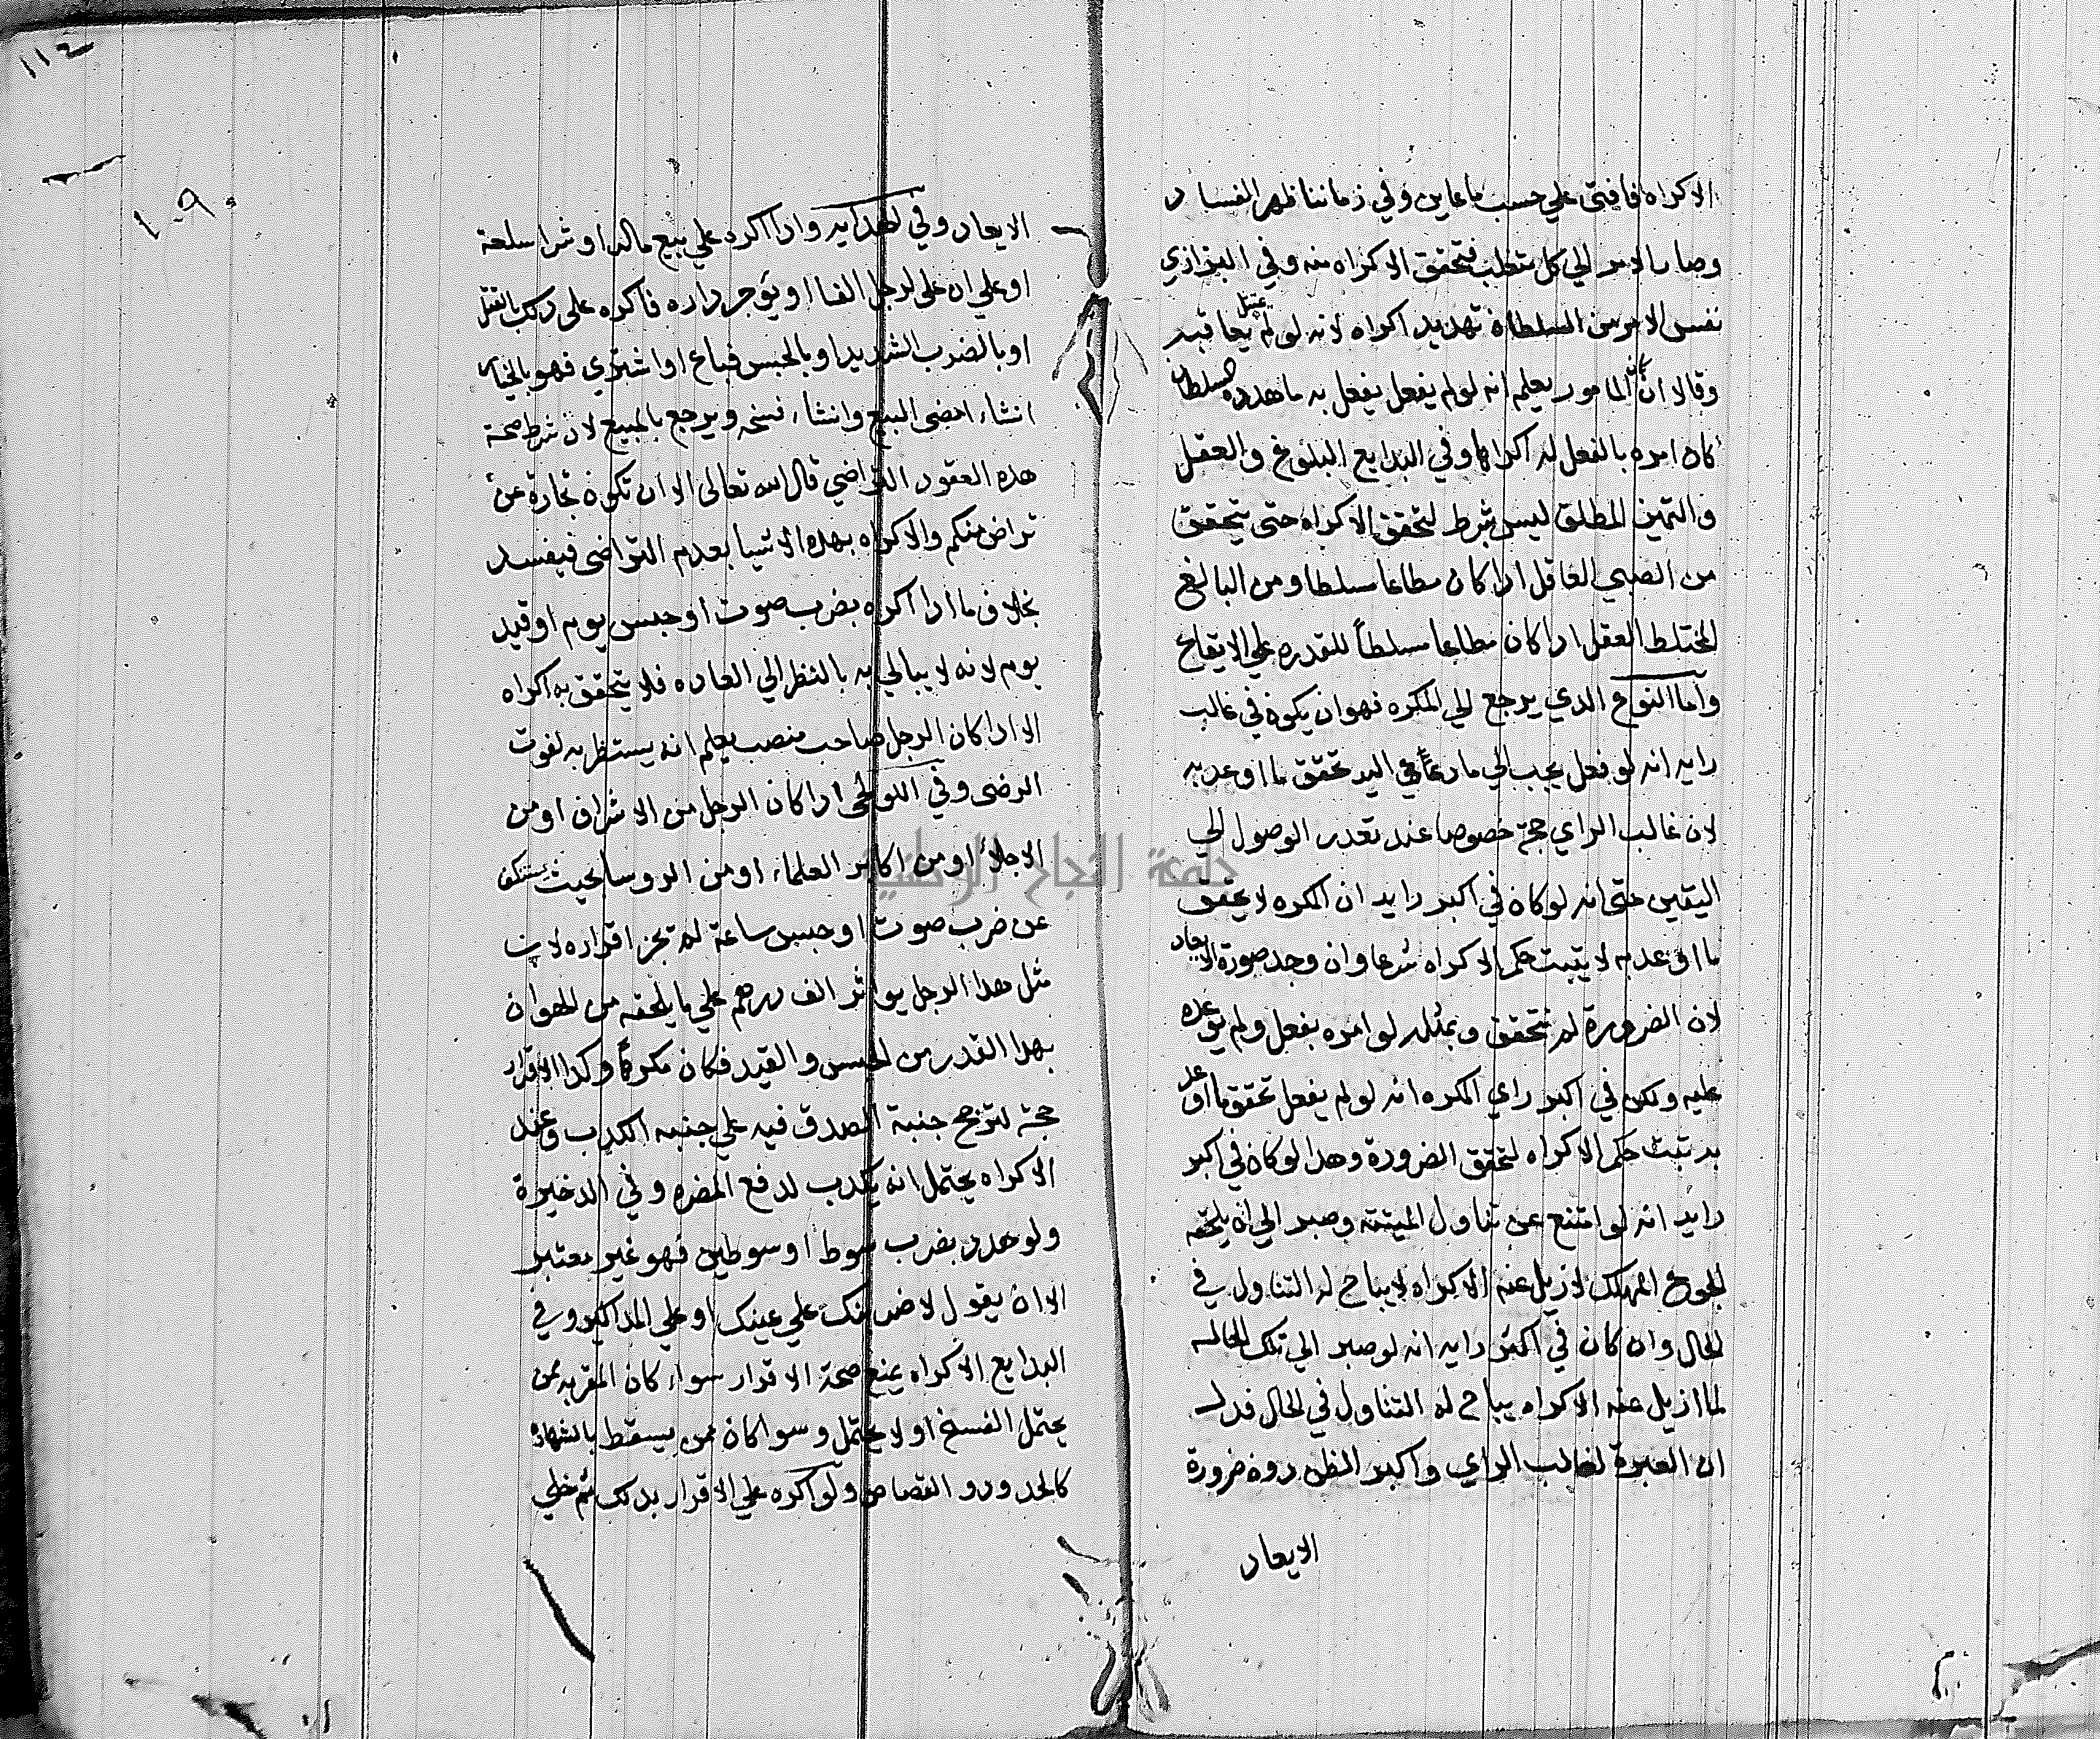 الاكراه فافتى علي حسب ما عاين وفي زماننا ظهر الفساد
وصار الامر الي كل متغلب فتحقق الاكراه منه وفي البزازي
نفس الامر من السلطان تهديد اكراه لانه لو لم يمتثل يعاقبه
وقالا ان المامور يعلم انه لو لم يفعل يفعل به ما هدده السلطان
كان امره بالفعل له اكراها وفي البدايع البلوغ والعقل
والتميز المطلق ليس بشرط لتحقق الاكراه حتى يتحقق
من الصبي العاقل ادا كان مطاعا مسلطا ومن البالغ
المختلط العقل ادا كان مطاعا مسلطاً للقدره علي الايقاع
وأما النوع الدي يرجع الي المكره فهوان يكون في غالب
رايه انه لو فعل يجب الي ما دعا اليه تحقق ما اوعد به
لان غالب الراي حجة خصوصا عند تعدر الوصول الي
اليقين حتى انه لو كان في اكبر رايه ان المكره لا يحقق
ما اوعد به لا يتبت حكم الاكراه شرعا وان وجد صورة الايعاد
لان الضرورة لم تتحقق وبمثله لو امره بفعل ولم يوعده
عليه ولكن في اكبر راي المكره انه لو لم يفعل تحقق ما اوعد
به تبت حكم الاكراه لتحقق الضرورة وهدا لو كان في اكبر
رايه انه لو امتنع عن تناول الميتة وصبر الي ان يلحقه
الجوع المهلك لازيل عنه الاكراه لا يباح له التناول في
الحال وان كان في اكبر رايه انه لو صبر الي تلك الحاله
لما ازيل عنه الاكراه يباح له التناول في الحال فدل
ان العبرة لغالب الراي واكبر الظن دون ضرورة
الايعاد
١١٤
١٩٠
الايعاد وفي الهدايه وادا اكره علي بيع ماله او شرا سلعة
او علي ان على لرجل الفا او يؤجر داره فاكره على دلك بالقتل
او بالضرب الشديد او بالحبس فباع او اشترى فهو بالخيار
انشاء امضى البيع وانشاء فسخه ويرجع بالمبيع لان شرط صحة
هده العقود التراضي قال الله تعالى الا ان تكون تجارة عن
تراض منكم والاكراه بهده الاشيا بعدم التراضى فيفسد
بخلاف ما ادا اكراه بضرب صوت او حبس يوم او قيد
يوم لانه لا يبالي به بالنظر الي العاده فلا يتحقق به اكراه
الا ادا كان الرجل صاحب منصب يعلم انه يستظر به لفوت
الرضى وفي ادا كان الرجل من الاشراف او من
الاجلاء او من اكابر العلماء او من الروسا بحيث يستنكف
عن ضرب صوت او حبس ساعة لم تجز اقراره لان
مثل هدا الرجل يواثر الف درهم علي ما يلحقه من الهوان
بهدا القدر من الحبس والقيد فكان مكرها وكدا الاقرار
حجة لترجح جنبة الصدق فيه علي جنبه الكدب وعند
الاكراه يحتمل انه يكدب لدفع المضره وفي الدخيرة
ولو هدد بضرب سوط او سوطين فهو غير معتبر
الا ان يقول لاضربنك علي عينك او علي المداكير وفي
البدايع الاكراه يمنع صحة الاقرار سواء كان المقر به ممن
يحتمل الفسخ او لا يحتمل وسوا كان ممن يسقط بالشهاد
كالحدود والقصاص ولو اكره علي الاقرار بدلك ثم خلي
جامعة النجاح الوطنية